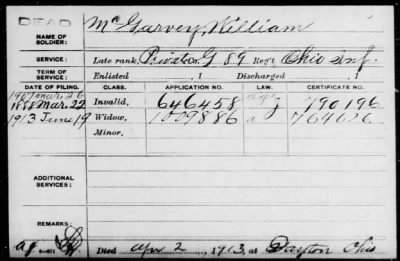 DEAD
NAME OF SOLDIER: McGarvey, William
SERVICE: Late rank, Private Co. G 89 Reg't Ohio Inf.
TERM OF SERVICE: Enlisted , 1 Discharged , 1
DATE OF FILING. CLASS. APPLICATION NO. LAW. CERTIFICATE NO.
1888 Mar. 22 Invalid, 646458 790196
1913 June 19 Widow, 1009886 764626
Minor.
ADDITIONAL SERVICES:
REMARKS:
Died Apr 2, 1913, at Dayton Ohio